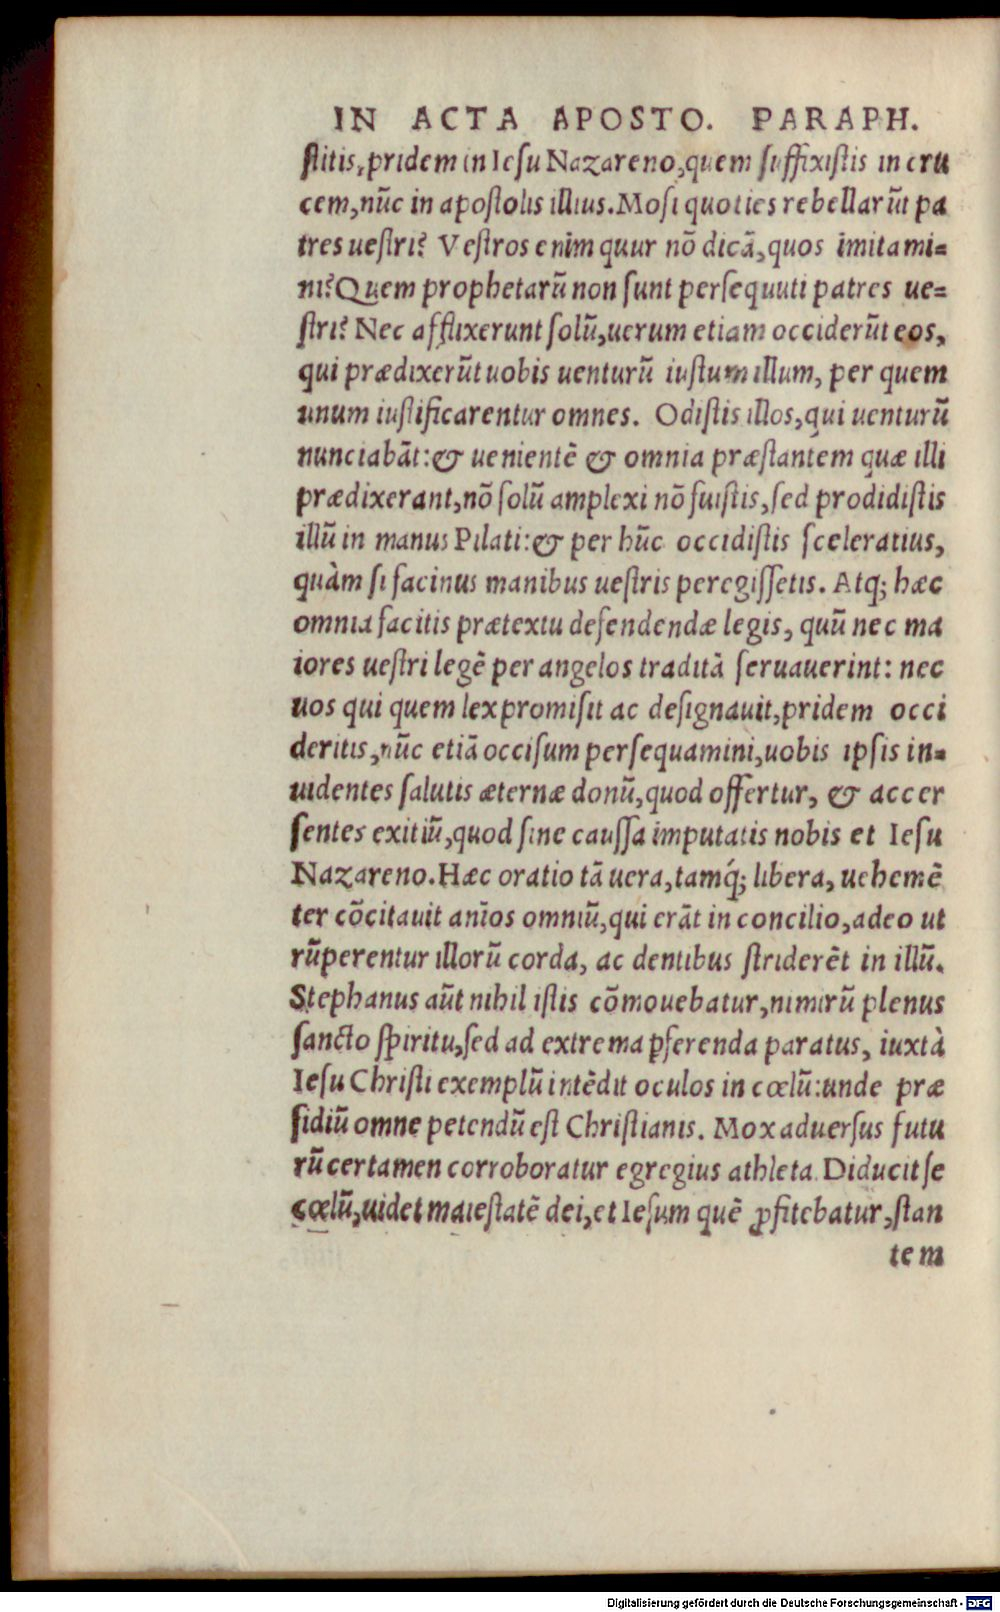 IN ACTA APOSTO. PARAPH.
ſtitis, pridem in Ieſu Nazareno, quem ſuffixiſtis in cru
cem, nūc in apoſtolis illius. Moſi quoties rebellarūt pa
tres ueſtri? Veſtros enim quur nō dicā, quos imitami=
ni? Quem prophetarū non ſunt perſequuti patres ue=
ſtri? Nec afflixerunt ſolū, uerum etiam occiderūt eos,
qui prædixerūt uobis uenturū iuſtum illum, per quem
unum iuſtificarentur omnes. Odiſtis illos, qui uenturū
nunciabāt: & uenientē & omnia præſtantem quæ illi
prædixerant, nō ſolū amplexi nō fuiſtis, ſed prodidiſtis
illū in manus Pilati: & per hūc occidiſtis ſceleratius,
quàm ſi facinus manibus ueſtris peregiſſetis. Atq; hæc
omnia facitis prætextu defendendæ legis, quū nec ma
iores ueſtri legē per angelos traditā ſeruauerint: nec
uos qui quem lex promiſit ac deſignauit, pridem occi
deritis, nūc etiā occiſum perſequamini, uobis ipſis in=
uidentes ſalutis æternæ donū, quod offertur, & accer
ſentes exitiū, quod ſine cauſſa imputatis nobis et Ieſu
Nazareno. Hæc oratio tā uera, tamq́; libera, uehemē
ter cōcitauit anīos omniū, qui erāt in concilio, adeo ut
rūperentur illorū corda, ac dentibus ſtriderēt in illū.
Stephanus aūt nihil iſtis cōmouebatur, nimirū plenus
ſancto ſpiritu, ſed ad extrema ꝑferenda paratus, iuxtà
Ieſu Chriſti exemplū intēdit oculos in cœlū: unde præ
ſidiū omne petendū eſt Chriſtianis. Mox aduerſus futu
rū certamen corroboratur egregius athleta. Diducit ſe
cœlū, uidet maieſtatē dei, et Ieſum quē ꝓfitebatur, ſtan
tem
Digitalisierung gefördert durch die Deutsche Forschungsgemeinschaft - DFG